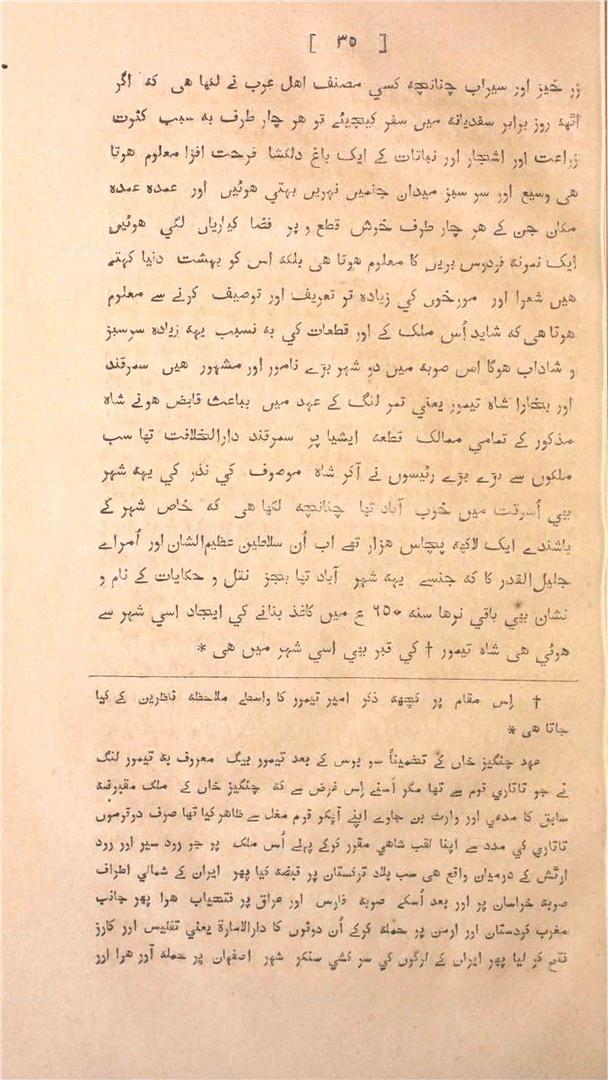 [ ۳۵ ]
زر خیز اور سیراب چنانچہ کسي مصنف اهل عرب نے لکھا هی کہ اگر
آٹھہ روز برابر سغدیانہ میں سفر کیجیئے تو هر چار طرف بہ سبب کثرت
زراعت اور اشجار اور نباتات کے ایک باغ دلکشا فرحت افزا معلوم هوتا
هی وسیع اور سر سبز میدان جنمیں نہریں بہتي هوئیں اور عمدہ عمدہ
مکان جن کے هر چار طرف خوش قطع و پر فضا کیاریاں لگي هوئیں
ایک نمونہ فردوس بریں کا معلوم هوتا هی بلکہ اس کو بہشت دنیا کہتے
هیں شعرا اور مورخوں کي زیادہ تو تعریف اور توصیف کرنے سے معلوم
هوتا هی کہ شاید اُس ملک کے اور قطعات کي بہ نسبت یہہ زیادہ سرسبز
و شاداب هوگا اس صوبہ میں دو شہر بڑے نامور اور مشہور هیں سمرقند
اور بخارا شاہ تیمور یعني تمر لنگ کے عہد میں بباعث قابض هونے شاہ
مذکور کے تمامي ممالک قطعہ ایشیا پر سمرقند دارالخلافت تھا سب
ملکوں سے بڑے بڑے رئیسوں نے آکر شاہ موصوف کي نذر کي یہہ شہر
بھي اُسوقت میں خوب آباد تھا چنانچہ لکھا هی کہ خاص شہر کے
باشندے ایک لاکھہ پچاس هزار تھے اب اُن سلاطین عظیم‌الشان اور اُمراے
جلیل‌القدر کا کہ جنسے یہہ شہر آباد تھا بجز نقل و حکایات کے نام و
نشان بھي باقي نرها سنہ ۶۵۰ ع میں کاغذ بنانے کي ایجاد اسي شہر سے
هوئي هی شاہ تیمور † کي قبر بھي اسي شہر میں هی *
† اِس مقام پر کچھہ ذکر امیر تیمور کا واسطے ملاحظہ ناظرین کے کیا
جاتا هی *
عہد چنگیز خاں کے تخمیناً سو برس کے بعد تیمور بیگ معروف بہ تیمور لنگ
نے جو تاتاري قوم سے تھا مگر اُسنے اِس غرض سے کہ چنگیز خاں کے ملک مقبوضہ
سابق کا مدعي اور وارث بن جاوے اپنے آپکو قوم مغل سے ظاهر کیا تھا صرف دو قوموں
تاتاري کي مدد سے اپنا لقب شاهي مقرر کرکے پہلے اُس ملک پر جو رود سیر اور رود
ارٹش کے درمیان واقع هی سب بلاد ترکستان پر قبضہ کیا پھر ایران کے شمالي اطراف
صوبہ خراسان پر اور بعد اُسکے صوبہ فارس اور عراق پر فتحیاب هوا پھر جانب
مغرب کردستان اور ارمن پر حملہ کرکے اُن دونوں کا دارالامارة یعني تفلیس اور کارز
فتح کر لیا پھر ایران کے لوگوں کي سر کشي سنکر شہر اصفہان پر حملہ آور هوا اور